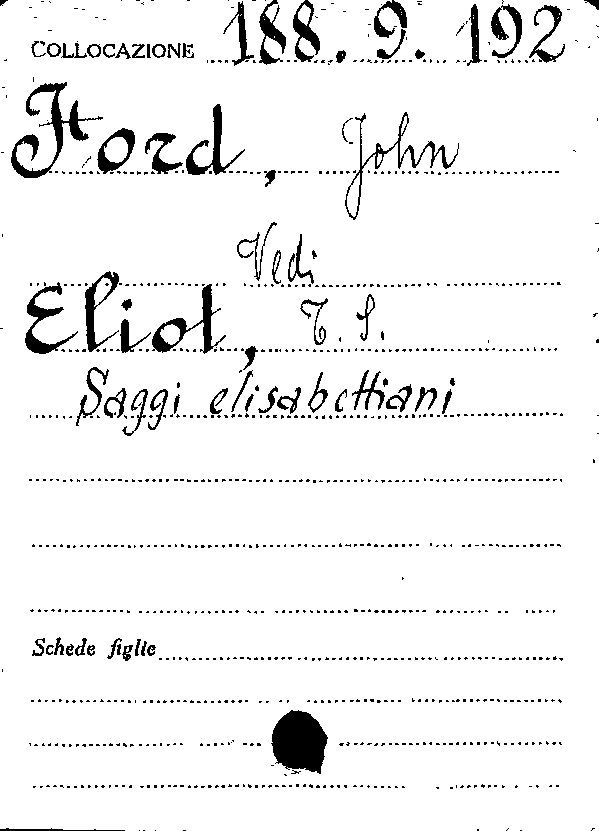 COLLOCAZIONE 188.9.192
Ford, John
Vedi
Eliot, T. S.
Saggi elisabettiani
Schede figlie